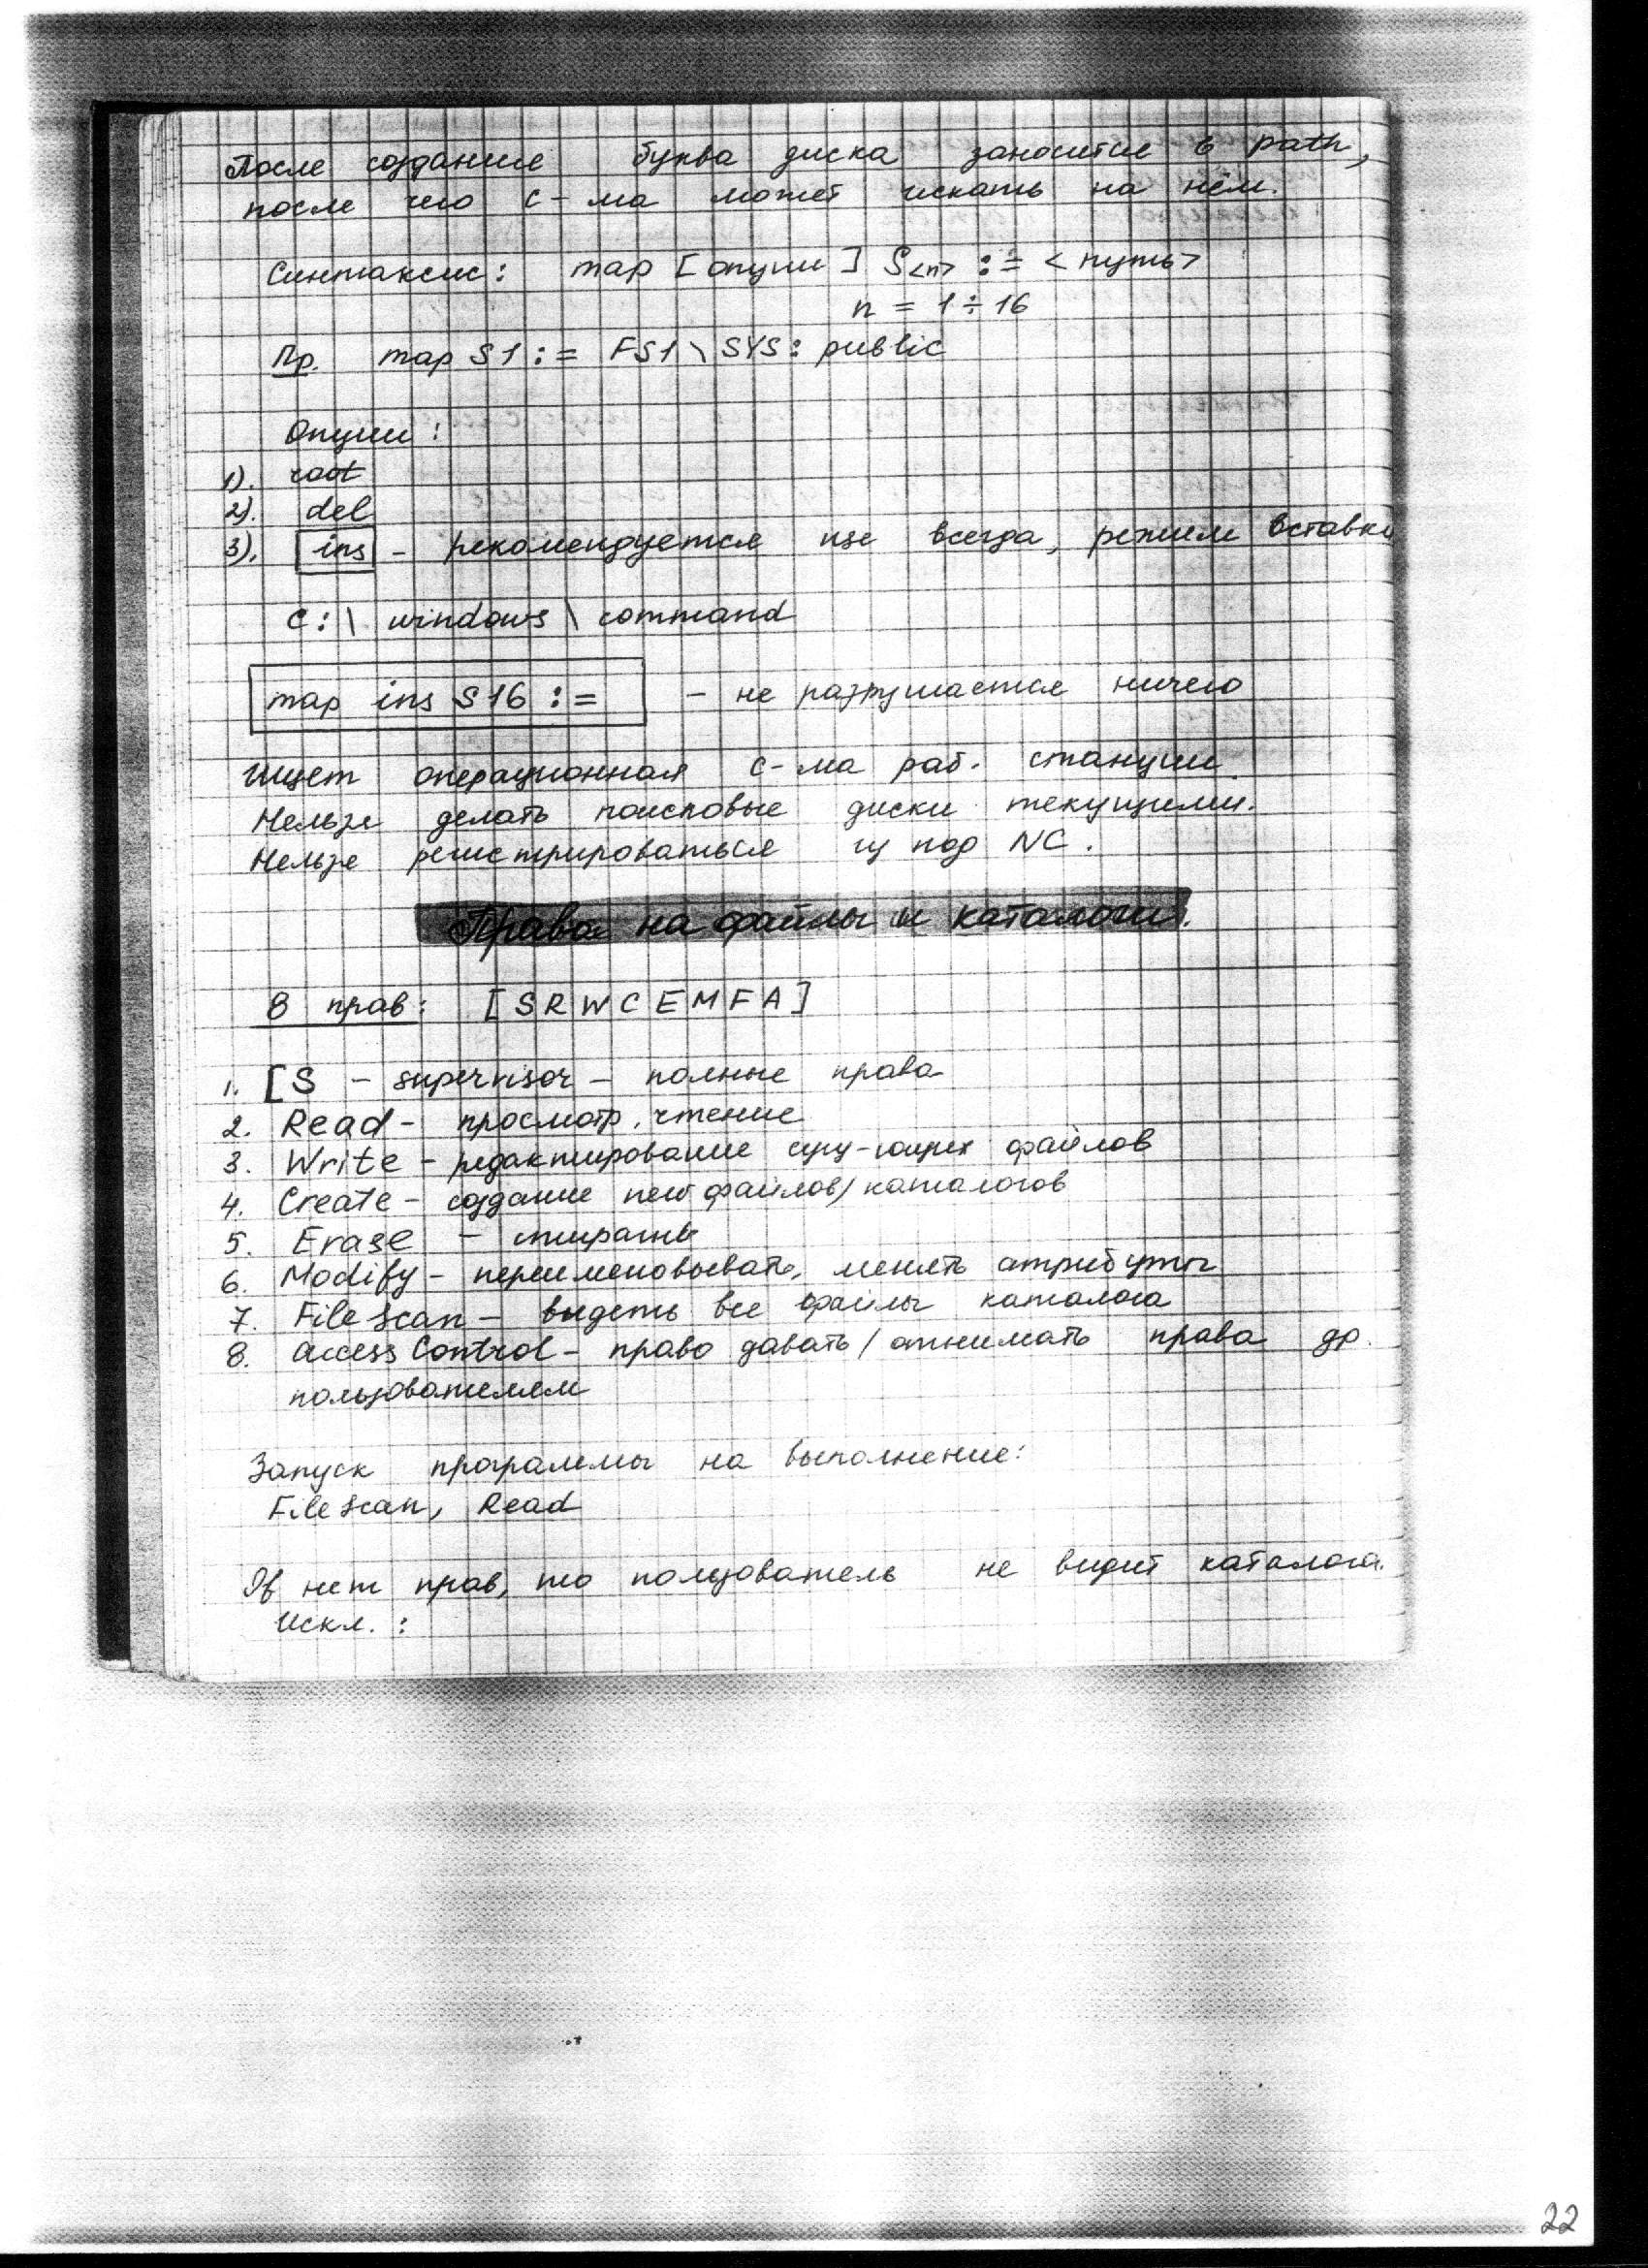 После создание буква диска заносится в path,
после чего с-ма может искать на нём.
Синтаксис: map [опции] S<n> := <путь>
n = 1÷16
Пр. map S1 := FS1 \ SYS: public
Опции:
1). root
2). del
3). ins - рекомендуется use всегда, режим вставки
C:\ windows \ command
map ins S16 := - не разрушается ничего
Ищет операционная с-ма раб. станции.
Нельзя делать поисковые диски текущими.
Нельзя регистрироваться из под NC.
Права на файлы и каталоги.
8 прав: [SRWCEMFA]
1. [S - supervisor - полные права
2. Read - просмотр, чтение
3. Write - редактирование сущ-ющих файлов
4. Create - создание new файлов/каталогов
5. Erase - стирать
6. Modify - переименовывать, менять атрибуты
7. File Scan - видеть все файлы каталога
8. Access Control - право давать / отнимать права др.
пользователям
Запуск программы на выполнение:
File Scan, Read
If нет прав, то пользователь не видит каталога.
Искл.:
22